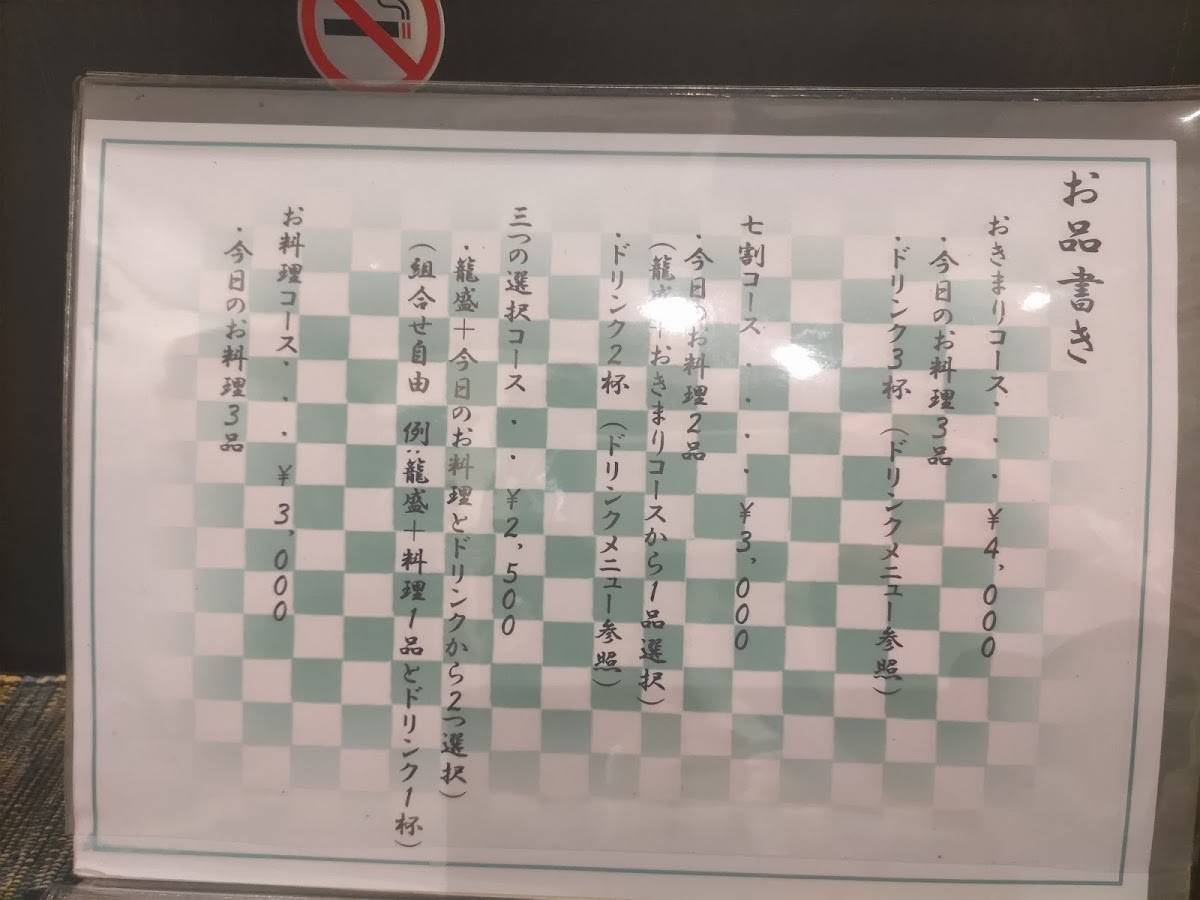 お品書き
おきまりコース・・・￥4,000
・今日のお料理3品
・ドリンク3杯（ドリンクメニュー参照）
七割コース・・・・￥3,000
・今日のお料理2品
（龍盛＋おきまりコースから1品選択）
・ドリンク2杯（ドリンクメニュー参照）
三つの選択コース・・・￥2,500
・龍盛＋今日のお料理とドリンクから2つ選択）
（組合せ自由　例:龍盛＋料理1品とドリンク1杯）
お料理コース・・・￥3,000
・今日のお料理3品